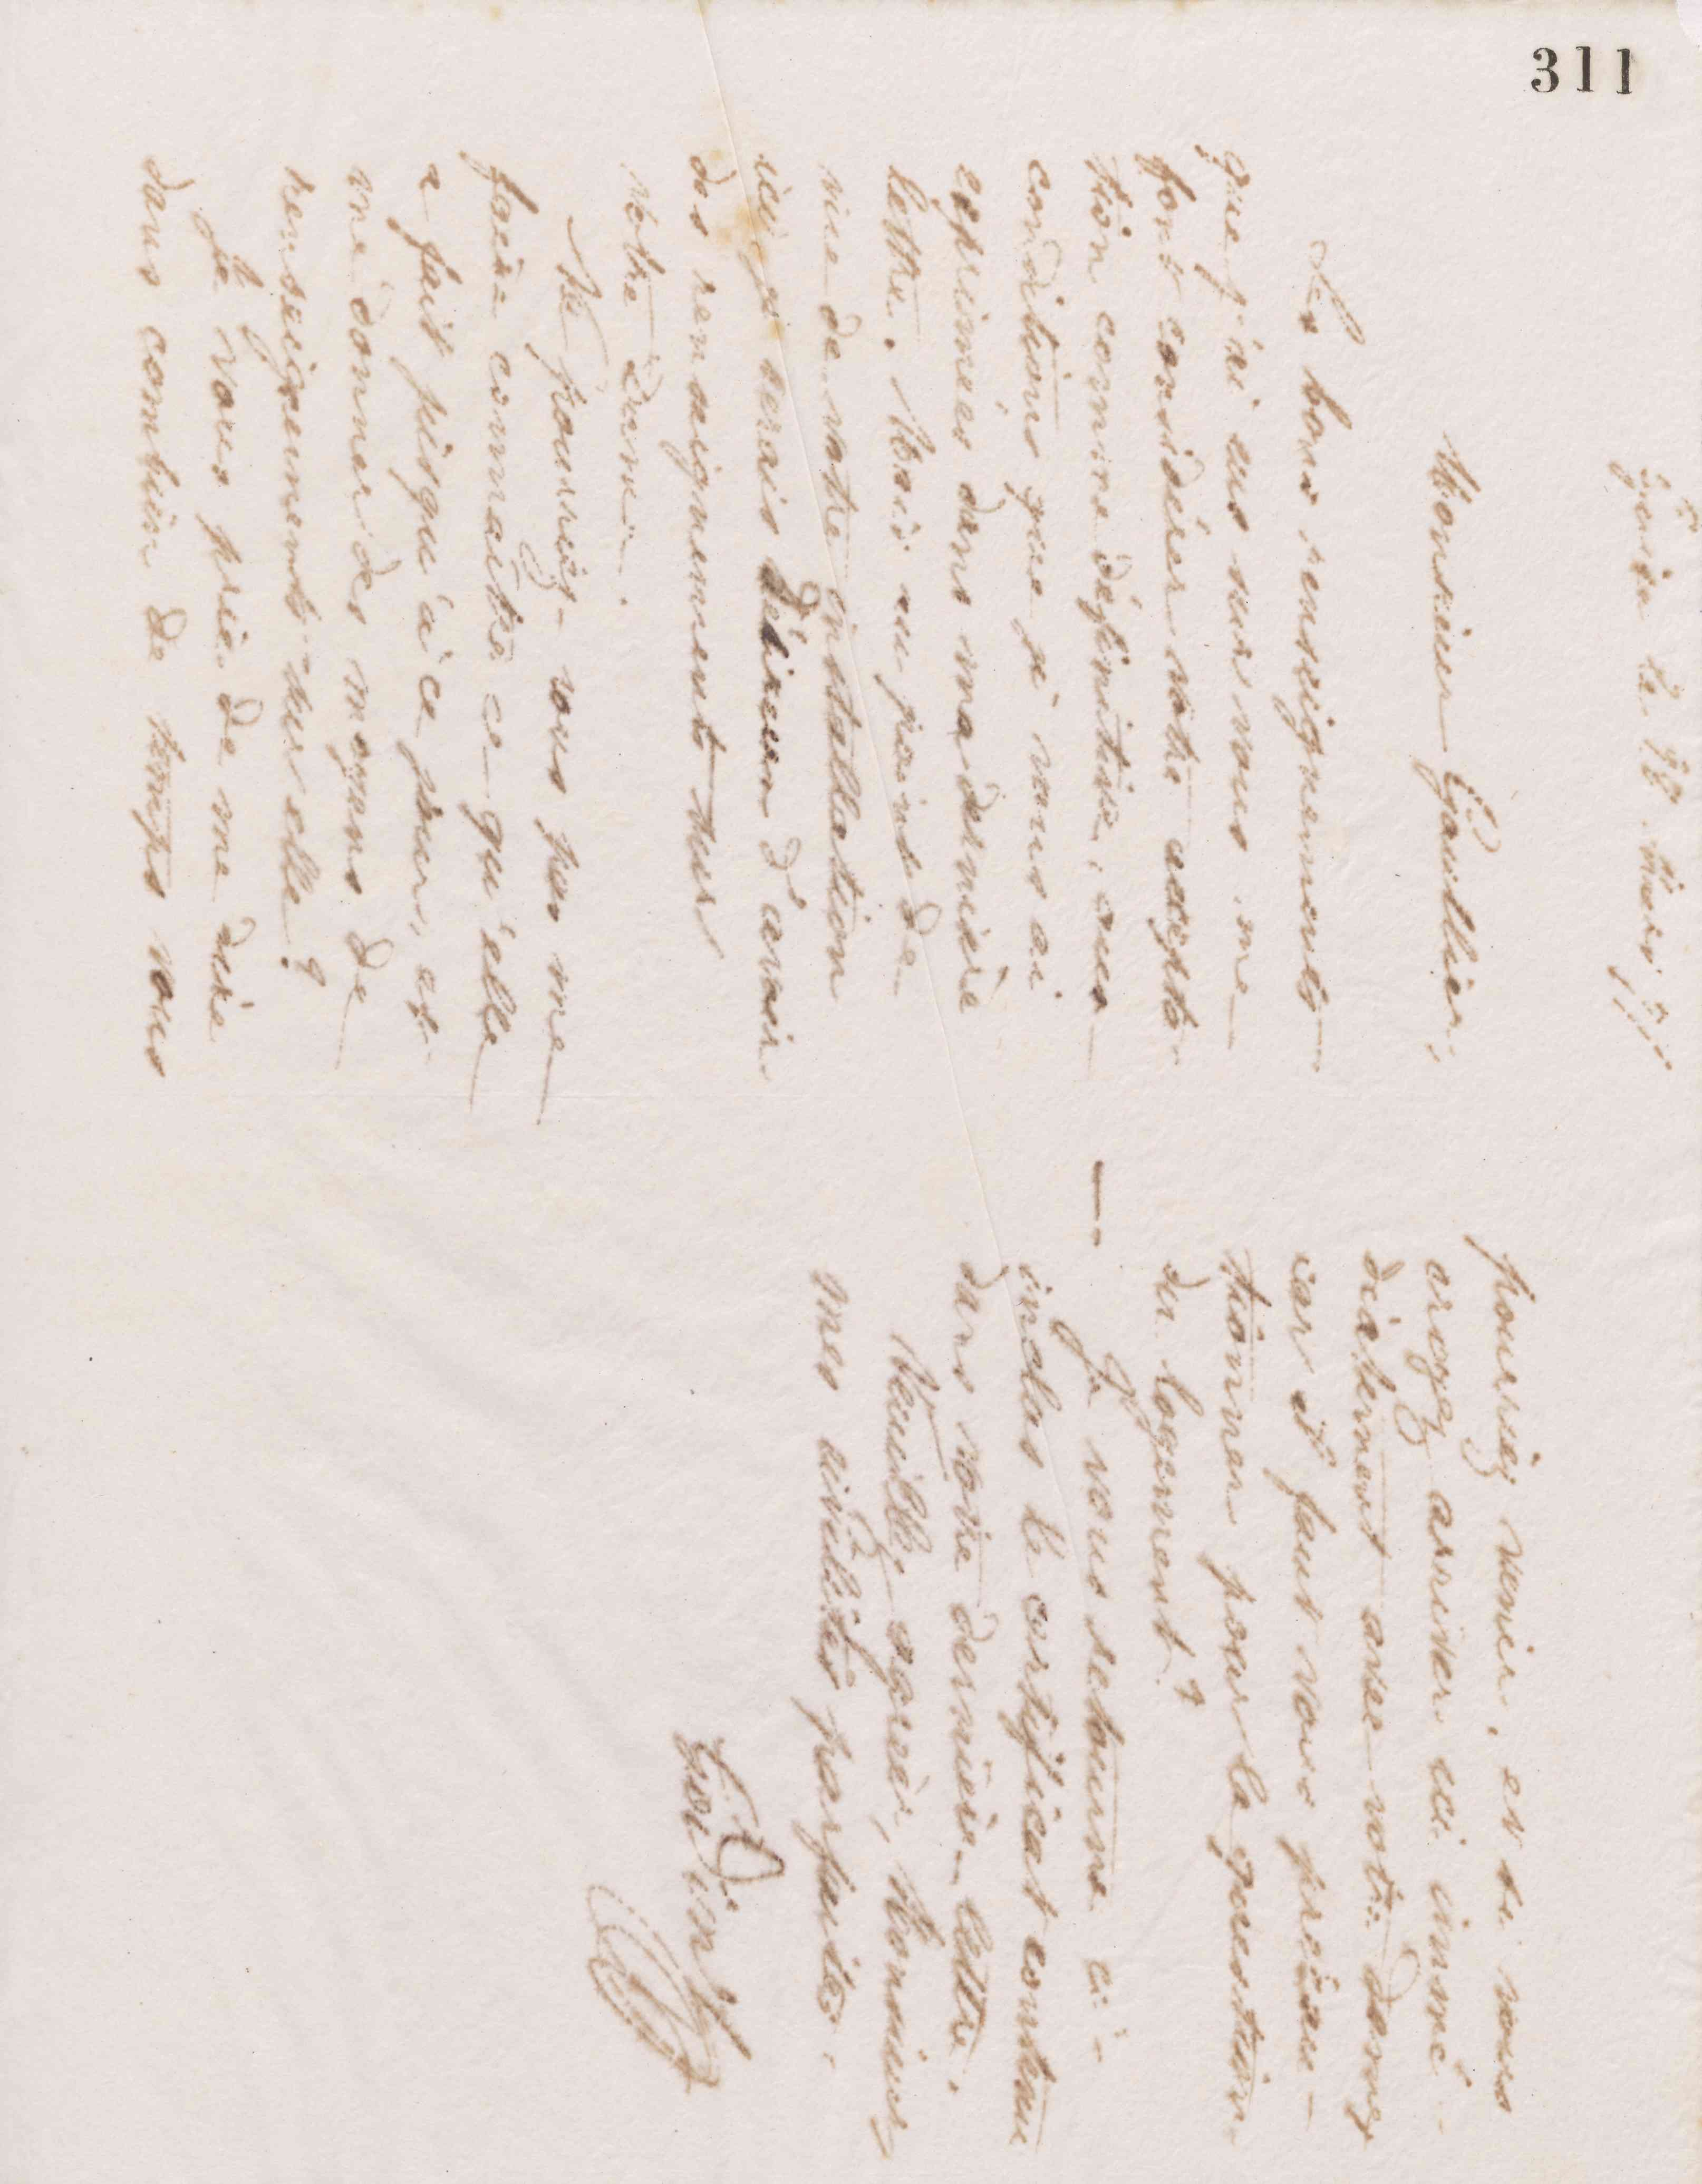 311
Guise le 28 Mars
Monsieur Gauthier,
Les bons renseignements
que j'ai eus sur vous me
font considérer votre accepta-
tion comme définitive, aux
conditions que je vous ai
exprimées dans ma dernière
lettre. Mais au point de
vue de votre installation
ici je serais désireux d'avoir
des renseignements sur
votre dame.
Ne pourriez-vous pas me
faire connaître ce qu'elle
a fait jusqu'à ce jour, et
me donner des moyens de
renseignements sur elle ?
Je vous prie de me dire
dans combien de temps vous
pourriez venir, et si vous
croyez arriver ici immé-
diatement avec votre dame,
car il faut vous précau-
tionner pour la question
du logement ?
Je vous retourne ci-
inclus le certificat contenu
dans votre dernière lettre.
Veuillez agréer, Monsieur,
mes civilités parfaites.
Godin